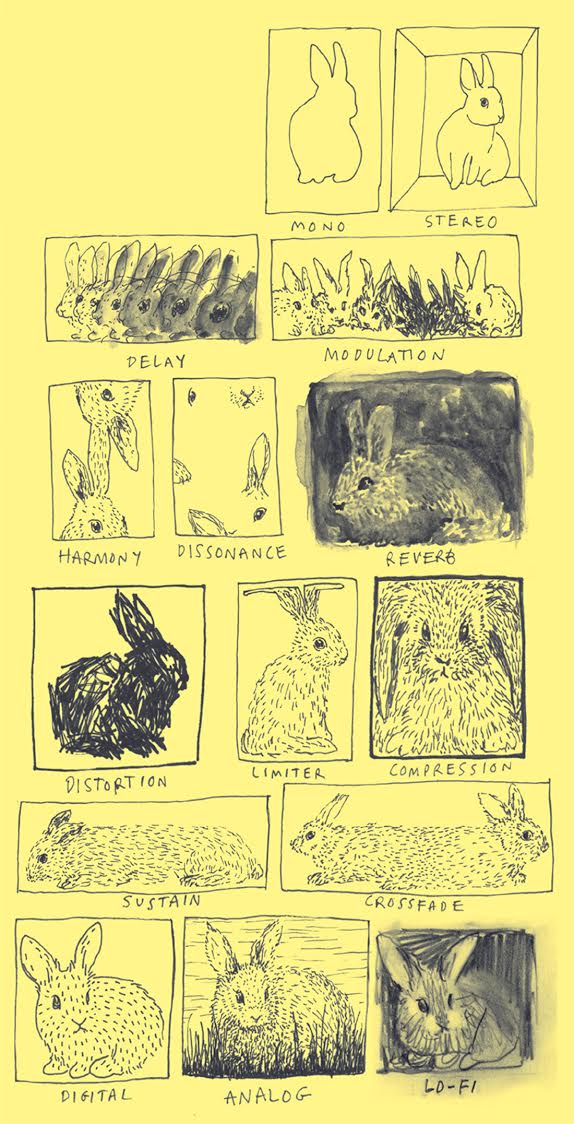 MONO
STEREO
DELAY
MODULATION
HARMONY
DISSONANCE
REVERB
DISTORTION
LIMITER
COMPRESSION
SUSTAIN
CROSSFADE
DIGITAL
ANALOG
LO-FI